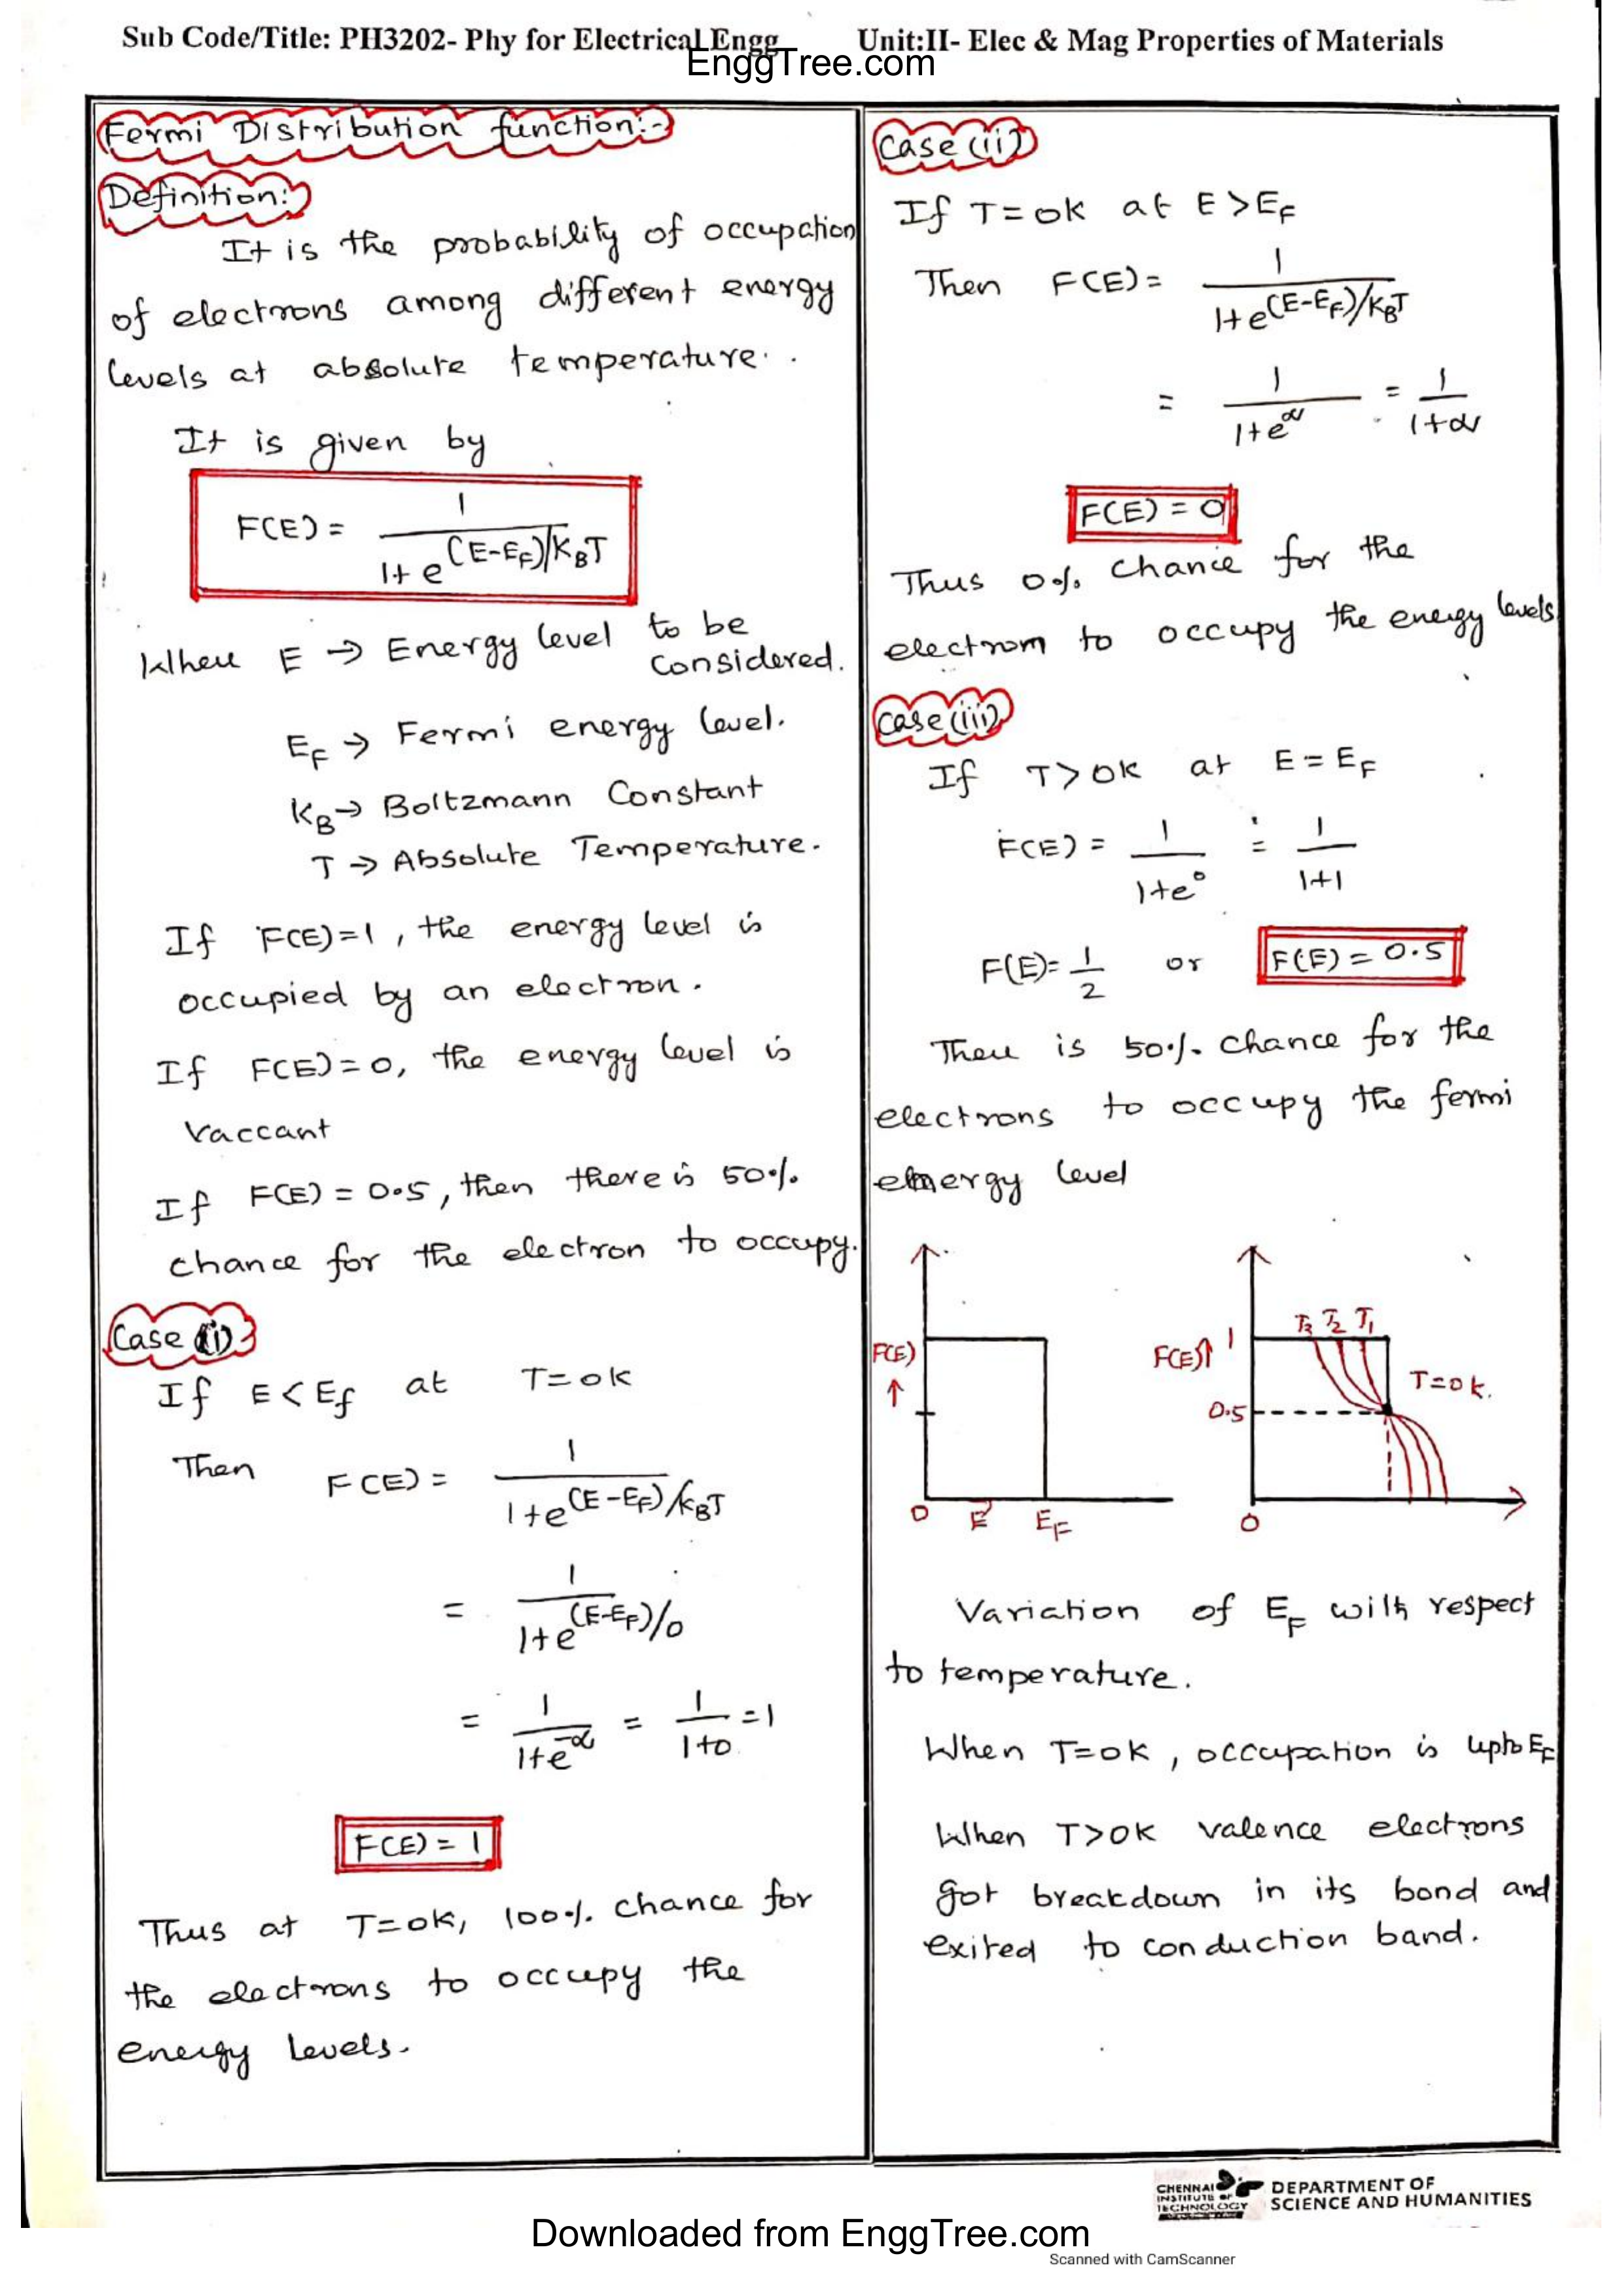 Sub Code/Title: PH3202- Phy for Electrical Engg Unit:II- Elec & Mag Properties of Materials
EnggTree.com
Fermi Distribution function:-
Definition:-
It is the probability of occupation
of electrons among different energy
levels at absolute temperature.
It is given by
F(E) = 1 / 1+e^(E-E_F)/K_BT
Where E → Energy level to be
considered.
E_F → Fermi energy level.
K_B → Boltzmann Constant
T → Absolute Temperature.
If F(E)=1, the energy level is
occupied by an electron.
If F(E)=0, the energy level is
Vaccant
If F(E) = 0.5, then there is 50%
chance for the electron to occupy.
Case (i)
If E < E_f at T=0K
Then F(E) = 1 / 1+e^(E-E_F)/K_BT
= 1 / 1+e^(E-E_F)/0
= 1 / 1+e^-∝ = 1 / 1+0 = 1
F(E) = 1
Thus at T=0K, 100% chance for
the electrons to occupy the
energy levels.
Case (ii)
If T=0K at E > E_F
Then F(E) = 1 / 1+e^(E-E_F)/K_BT
= 1 / 1+e^∝ = 1 / 1+∝
F(E) = 0
Thus 0% chance for the
electrom to occupy the energy levels
Case (iii)
If T>0K at E = E_F
F(E) = 1 / 1+e^0 = 1 / 1+1
F(E) = 1/2 or F(E) = 0.5
There is 50% chance for the
electrons to occupy the fermi
energy level
F(E) ↑ 0 E E_F
F(E)↑ 1 0.5 T3 T2 T1 T=0k. 0
Variation of E_F with respect
to temperature.
When T=0K, occupation is upto E_F
When T>0K valence electrons
got breakdown in its bond and
exited to conduction band.
CHENNAI
INSTITUTE OF
TECHNOLOGY
DEPARTMENT OF
SCIENCE AND HUMANITIES
Downloaded from EnggTree.com
Scanned with CamScanner